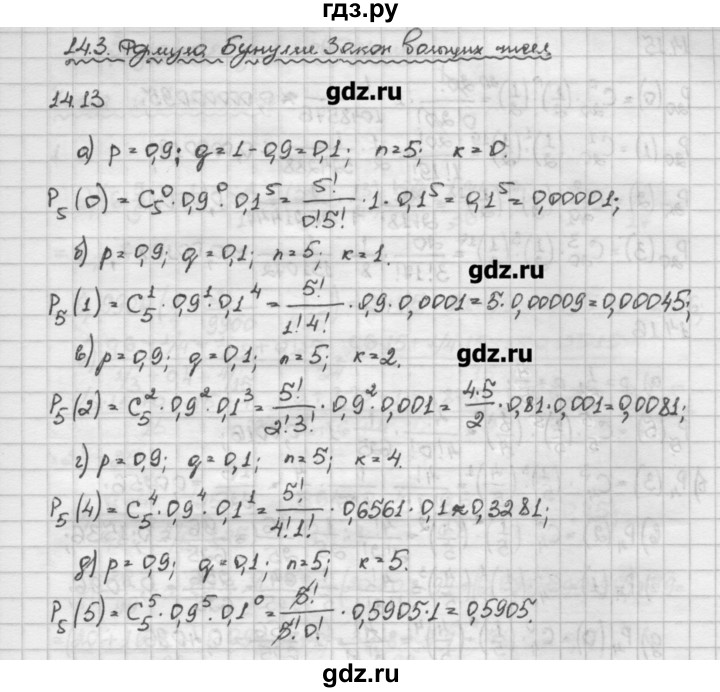 гдз.ру
14.3. Формула Бунулли Закон больших чисел
14.13
gdz.ru
а) p = 0,9; q = 1 - 0,9 = 0,1; n = 5; к = 0
P₅(0) = C₅⁰ · 0,9⁰ · 0,1⁵ = 5!/0!5! · 1 · 0,1⁵ = 0,1⁵ = 0,00001;
б) p = 0,9; q = 0,1; n = 5; к = 1.
gdz.ru
P₅(1) = C₅¹ · 0,9¹ · 0,1⁴ = 5!/1!4! · 0,9 · 0,0001 = 5 · 0,00009 = 0,00045;
в) p = 0,9; q = 0,1; n = 5; к = 2.
gdz.ru
P₅(2) = C₅² · 0,9² · 0,1³ = 5!/2!3! · 0,9² · 0,001 = 4·5/2 · 0,81 · 0,001 = 0,0081;
г) p = 0,9; q = 0,1; n = 5; к = 4.
P₅(4) = C₅⁴ · 0,9⁴ · 0,1¹ = 5!/4!1! · 0,6561 · 0,1 ≈ 0,3281;
д) p = 0,9; q = 0,1; n = 5; к = 5.
P₅(5) = C₅⁵ · 0,9⁵ · 0,1⁰ = 5!/5!0! · 0,5905 · 1 = 0,5905.
gdz.ru
gdz.ru